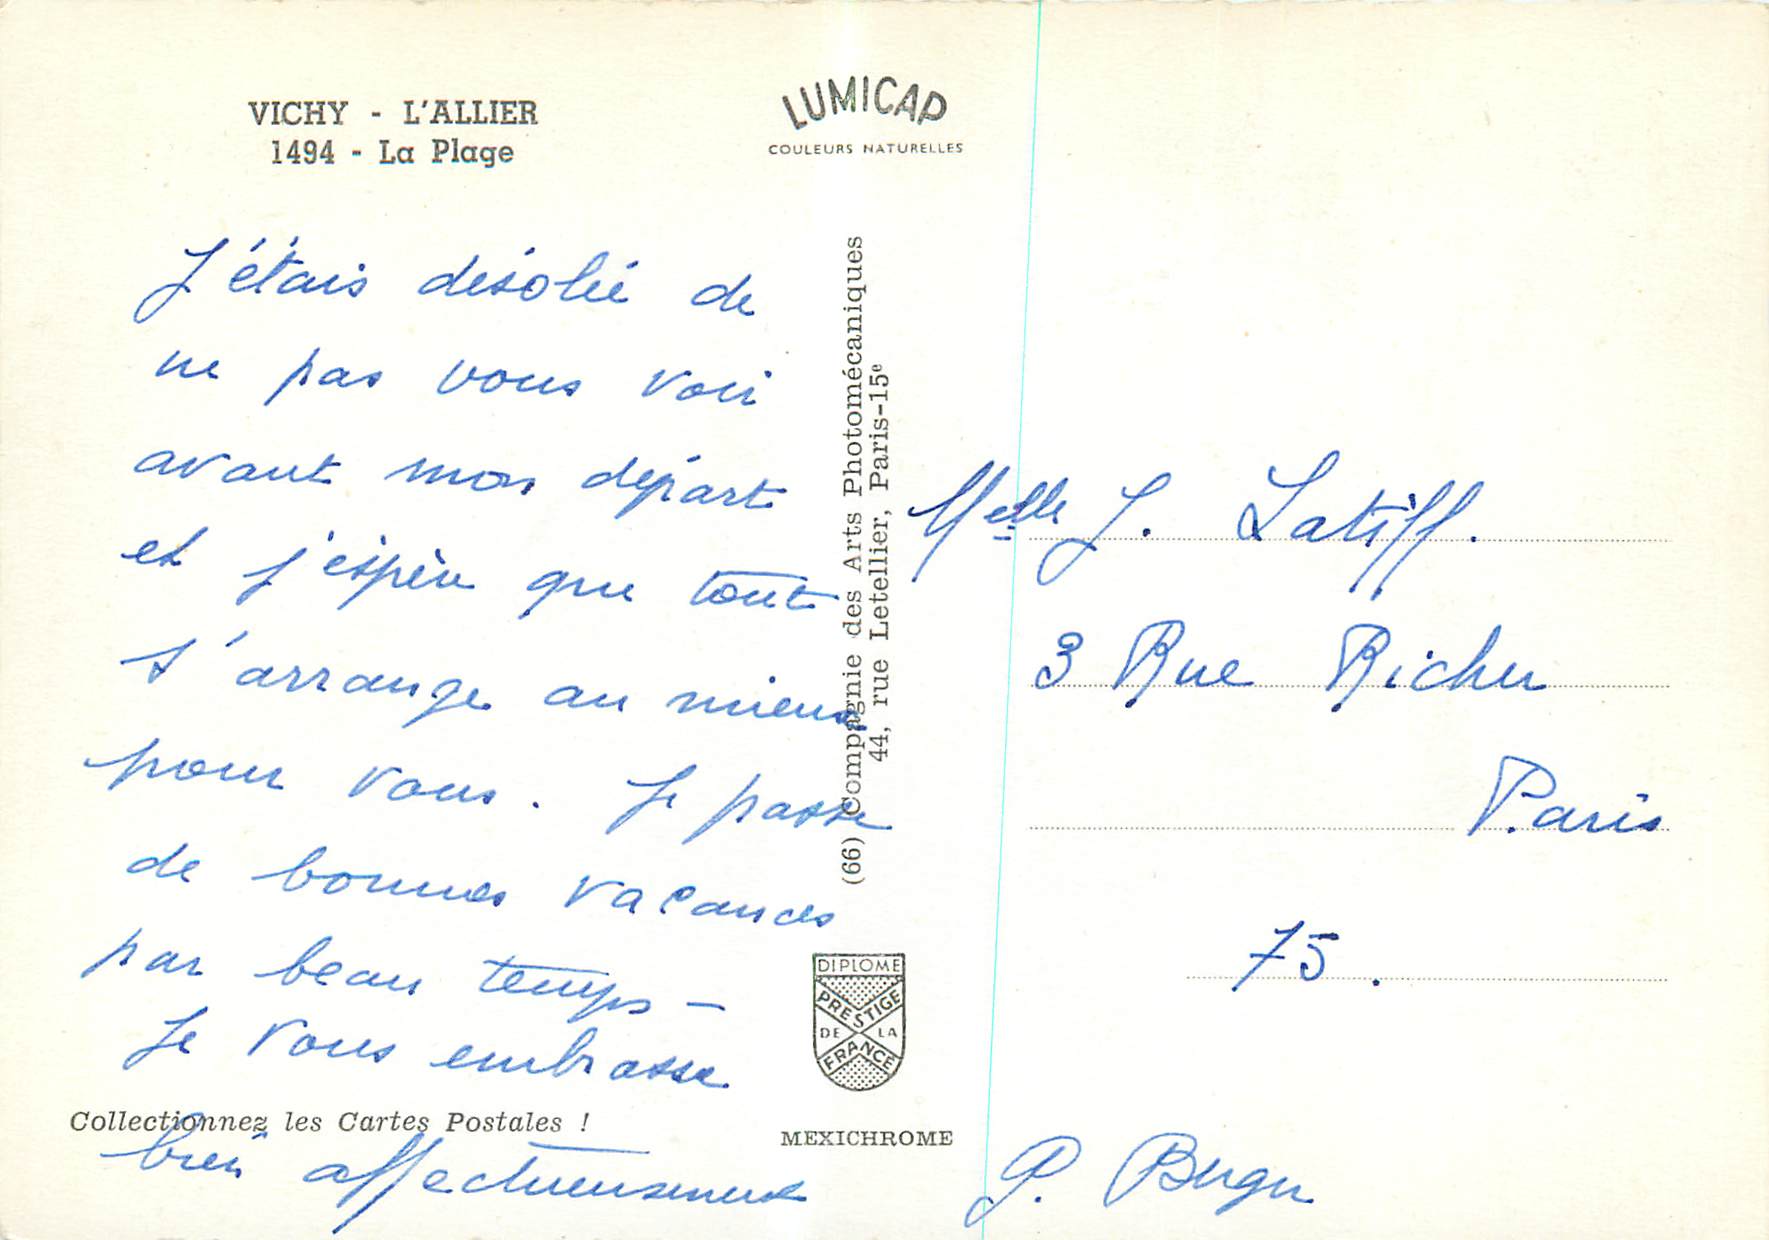 VICHY - L'ALLIER
1494 - La Plage
LUMICAP
COULEURS NATURELLES
J'étais désolé de
ne pas vous voir
avant mon départ
et j'espère que tout
s'arrange au mieux
pour vous. Je passe
de bonnes vacances
par beau temps -
Je vous embrasse
bien affectueusement
Collectionnez les Cartes Postales !
(66) Compagnie des Arts Photomécaniques
44, rue Letellier, Paris-15e
DIPLOME
PRESTIGE
DE LA
FRANCE
MEXICHROME
Melle J. Latiff.
3 Rue Richer
Paris
75.
P. Berger